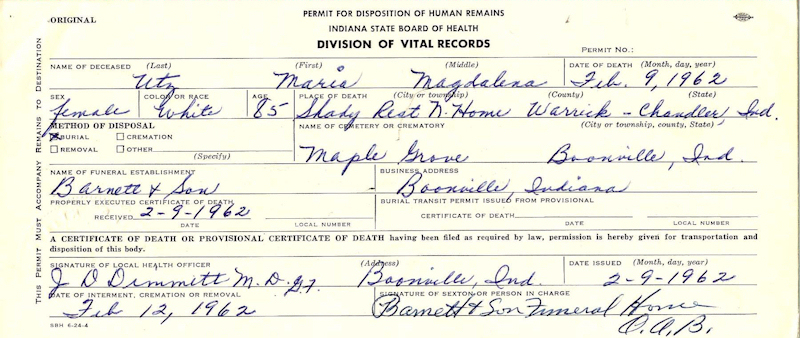 ORIGINAL
PERMIT FOR DISPOSITION OF HUMAN REMAINS
INDIANA STATE BOARD OF HEALTH
DIVISION OF VITAL RECORDS
PERMIT NO.:
NAME OF DECEASED (Last) (First) (Middle) DATE OF DEATH (Month, day, year)
Utz Maria Magdalena Feb. 9, 1962
SEX COLOR OR RACE AGE PLACE OF DEATH (City or township) (County) (State)
female White 85 Shady Rest N. Home Warrick - Chandler, Ind.
METHOD OF DISPOSAL NAME OF CEMETERY OR CREMATORY (City or township, county, State)
BURIAL CREMATION
REMOVAL OTHER
(Specify)
Maple Grove Boonville, Ind.
NAME OF FUNERAL ESTABLISHMENT BUSINESS ADDRESS
Barnett & Son - Boonville, Indiana
PROPERLY EXECUTED CERTIFICATE OF DEATH BURIAL TRANSIT PERMIT ISSUED FROM PROVISIONAL
RECEIVED 2-9-1962 CERTIFICATE OF DEATH
DATE LOCAL NUMBER DATE LOCAL NUMBER
A CERTIFICATE OF DEATH OR PROVISIONAL CERTIFICATE OF DEATH having been filed as required by law, permission is hereby given for transportation and
disposition of this body.
SIGNATURE OF LOCAL HEALTH OFFICER (Address) DATE ISSUED (Month, day, year)
J D Dimmett M.D. Boonville, Ind. 2-9-1962
DATE OF INTERMENT, CREMATION OR REMOVAL SIGNATURE OF SEXTON OR PERSON IN CHARGE
Feb 12, 1962 Barnett & Son Funeral Home
O.A.B.
SBH 6-24-4
THIS PERMIT MUST ACCOMPANY REMAINS TO DESTINATION